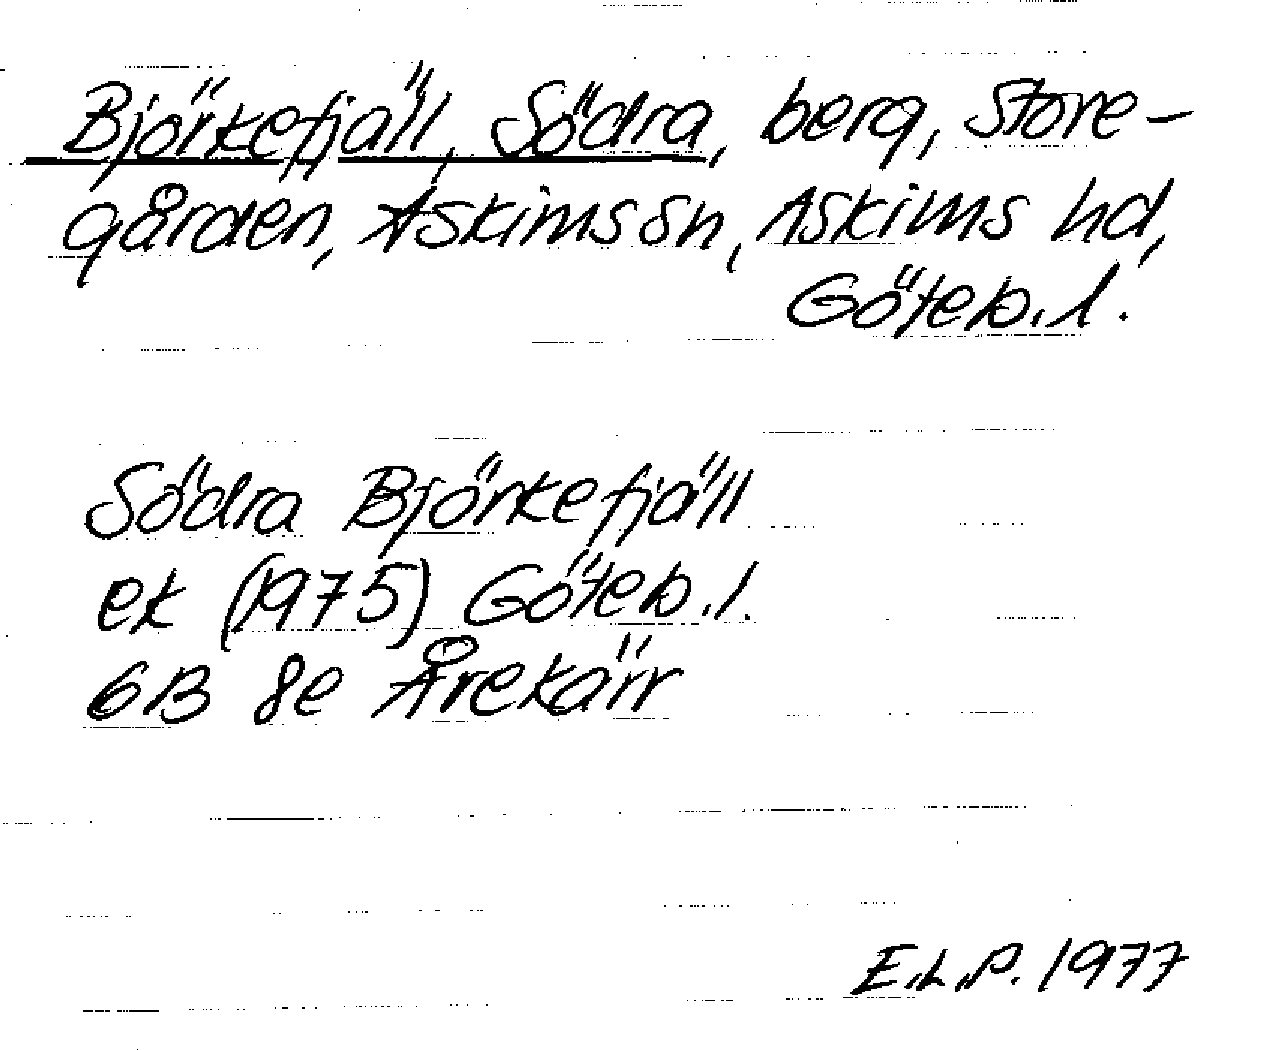 Björkefjäll, Södra, berg, Store-
gården, Askims sn, Askims hd,
Göteb. l.
Södra Björkefjäll
ek (1975) Göteb. l.
6B 8e Årekärr
E.L.P. 1977